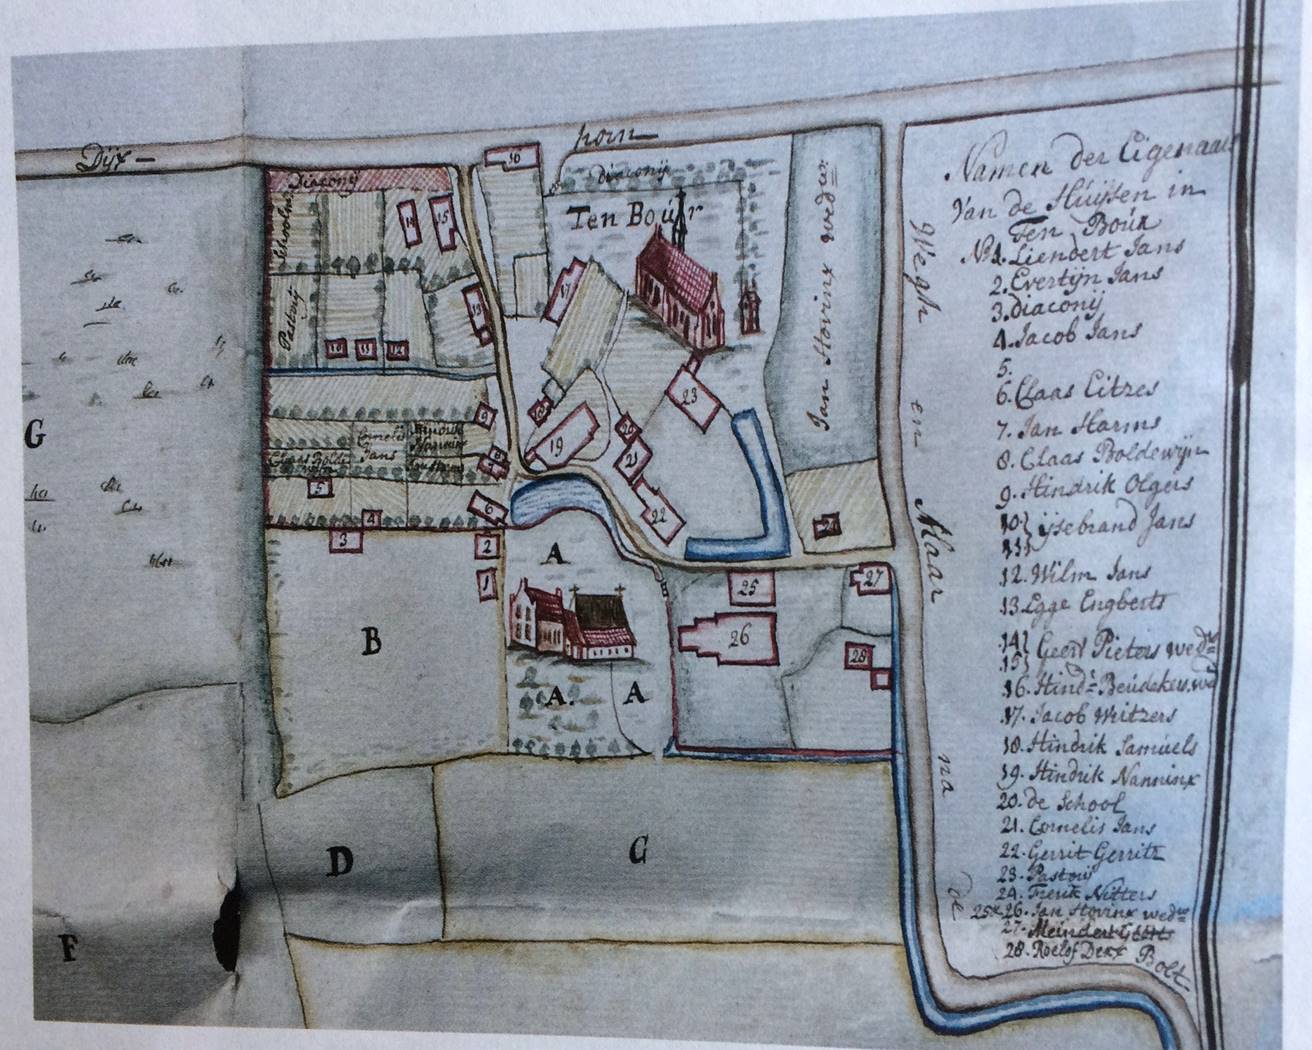 Dijk
horn
Diaconij
diaconij
Ten Boúr
Schoolan
Pastorij
Jan Hovinx wedwe
Cornelis
Jans
Claas Bolde
16
14
15
17
13
10
11
12
9
19
20
21
22
23
24
5
4
3
6
8
7
2
1
25
26
27
28
A
A.
A
B
G
D
F
G
Wegh en Maar na de Bolt
Namen der Eigenaars
Van de Húijsen in
Ten Boúr
No 1. Liendert Jans
2. Evertijn Jans
3. diaconij
4. Jacob Jans
5.
6. Claas Eitzes
7. Jan Harms
8. Claas Boldewijn
9. Hindrik Olgers
10 } ijsebrand Jans
11 }
12. Wilm Jans
13. Egge Engberts
14 } Geert Pieters wedwe
15 }
16. Hindr. Beúdekers we
17. Jacob Writzers
18. Hindrik Samúels
19. Hindrik Nanninx
20. de School
21. Cornelis Jans
22. Gerrit Gerritz
23. Pastorij
24. Frerik Nitters
25 & 26. Jan Hovinx wedwe
27. Meindert Geerts
28. Roelof Derx